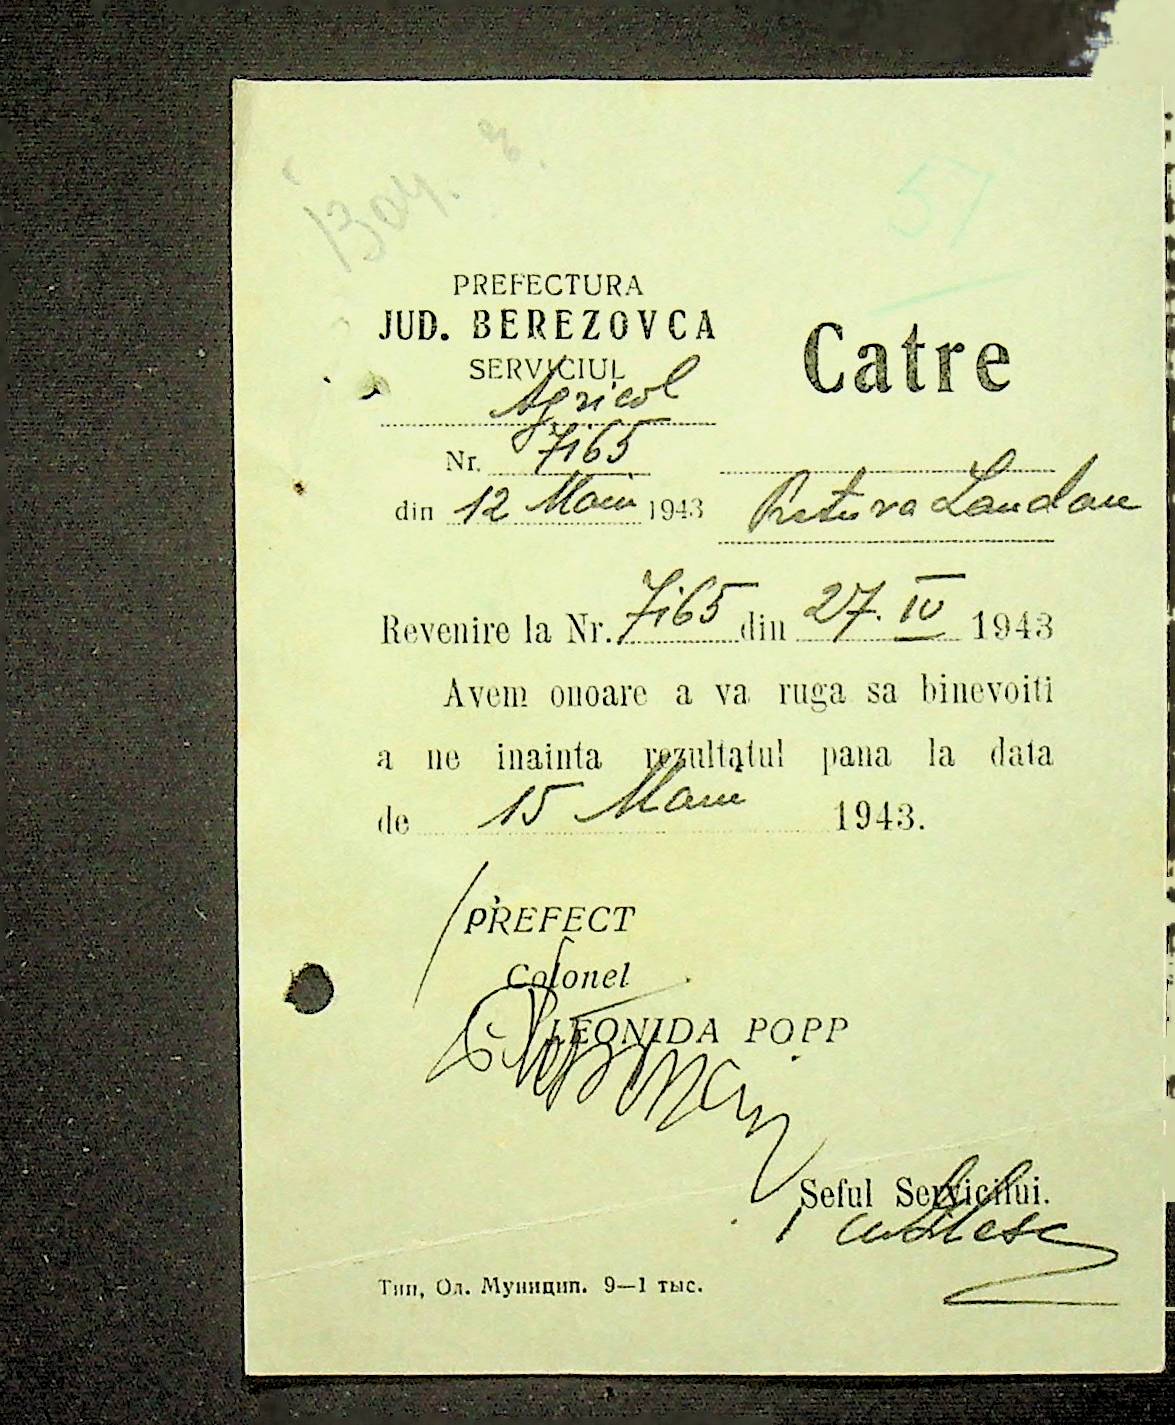 57
PREFECTURA
JUD. BEREZOVCA
SERVICIUL
Agricol
Nr. 7165
din 12 Maiu 1943
Catre
Pretura Landau
Revenire la Nr. 7165 din 27. IV 1943
Avem onoare a va ruga sa binevoiti
a ne inainta rezultatul pana la data
de 15 Maiu 1943.
PREFECT
Colonel
LEONIDA POPP
Seful Serviciului.
Тип, Од. Муницип. 9—1 тыс.